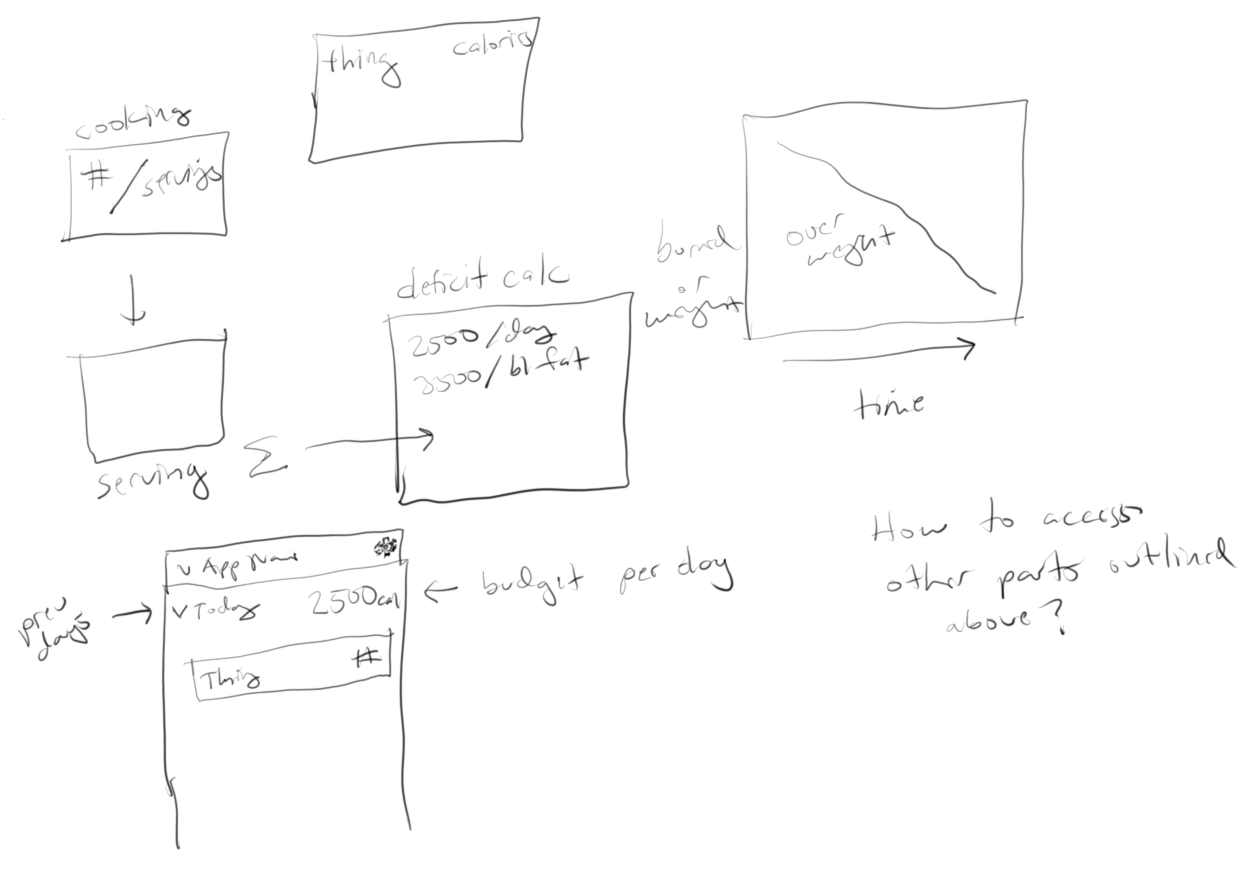 thing calories
cooking
# / servings
deficit calc
2500/day
3500/bl fat
serving Σ
burned
or
weight
over
weight
time
v App Name
v Today 2500cal
Thing #
prev
days
← budget per day
How to access
other parts outlined
above?